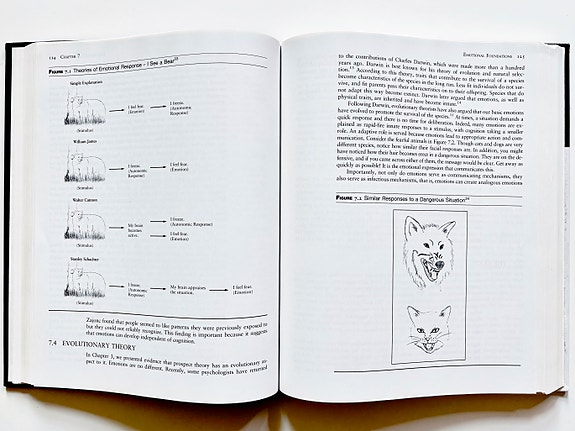 114 CHAPTER 7
FIGURE 7.1 Theories of Emotional Response – I See a Bear
Simple Explanation
(Stimulus)
I feel fear.
(Emotion)
I freeze.
(Autonomic
Response)
William James
(Stimulus)
I freeze.
(Autonomic
Response)
I feel fear.
(Emotion)
Walter Cannon
(Stimulus)
My brain
becomes
active.
I freeze.
(Autonomic Response)
I feel fear.
(Emotion)
Stanley Schachter
(Stimulus)
I freeze.
(Autonomic
Response)
My brain appraises
the situation.
I feel fear.
(Emotion)
Zajonc found that people seemed to like patterns they were previously exposed to
but they could not reliably recognize. This finding is important because it suggests
that emotions can develop independent of cognition.
7.4 EVOLUTIONARY THEORY
In Chapter 3, we presented evidence that prospect theory has an evolutionary as-
pect to it. Emotions are no different. Recently, some psychologists have returned
EMOTIONAL FOUNDATIONS 115
to the contributions of Charles Darwin, which were made more than a hundred
years ago. Darwin is best known for his theory of evolution and natural selec-
tion. According to this theory, traits that contribute to the survival of a species
become characteristics of the species in the long run. Less fit individuals do not sur-
vive, and fit parents pass their characteristics on to their offspring. Species that do
not adapt this way become extinct. Darwin later argued that emotions, as well as
physical traits, are inherited and have become innate.
Following Darwin, evolutionary theorists have also argued that our basic emotions
have evolved to promote the survival of the species. At times, a situation demands a
quick response and there is no time for deliberation. Indeed, many emotions are ex-
plained as rapid-fire innate responses to a stimulus, with cognition taking a smaller
role. An adaptive role is served because emotions lead to appropriate action and com-
munication. Consider the fearful animals in Figure 7.2. Though cats and dogs are very
different species, notice how similar their facial responses are. In addition, you might
have noticed how their hair becomes erect in a dangerous situation. They are on the de-
fensive, and if you came across either of them, the message would be clear. Get away as
quickly as possible! It is the emotional expression that communicates this.
Importantly, not only do emotions serve as communicating mechanisms, they
also serve as infectious mechanisms, that is, emotions can create analogous emotions
FIGURE 7.2 Similar Responses to a Dangerous Situation